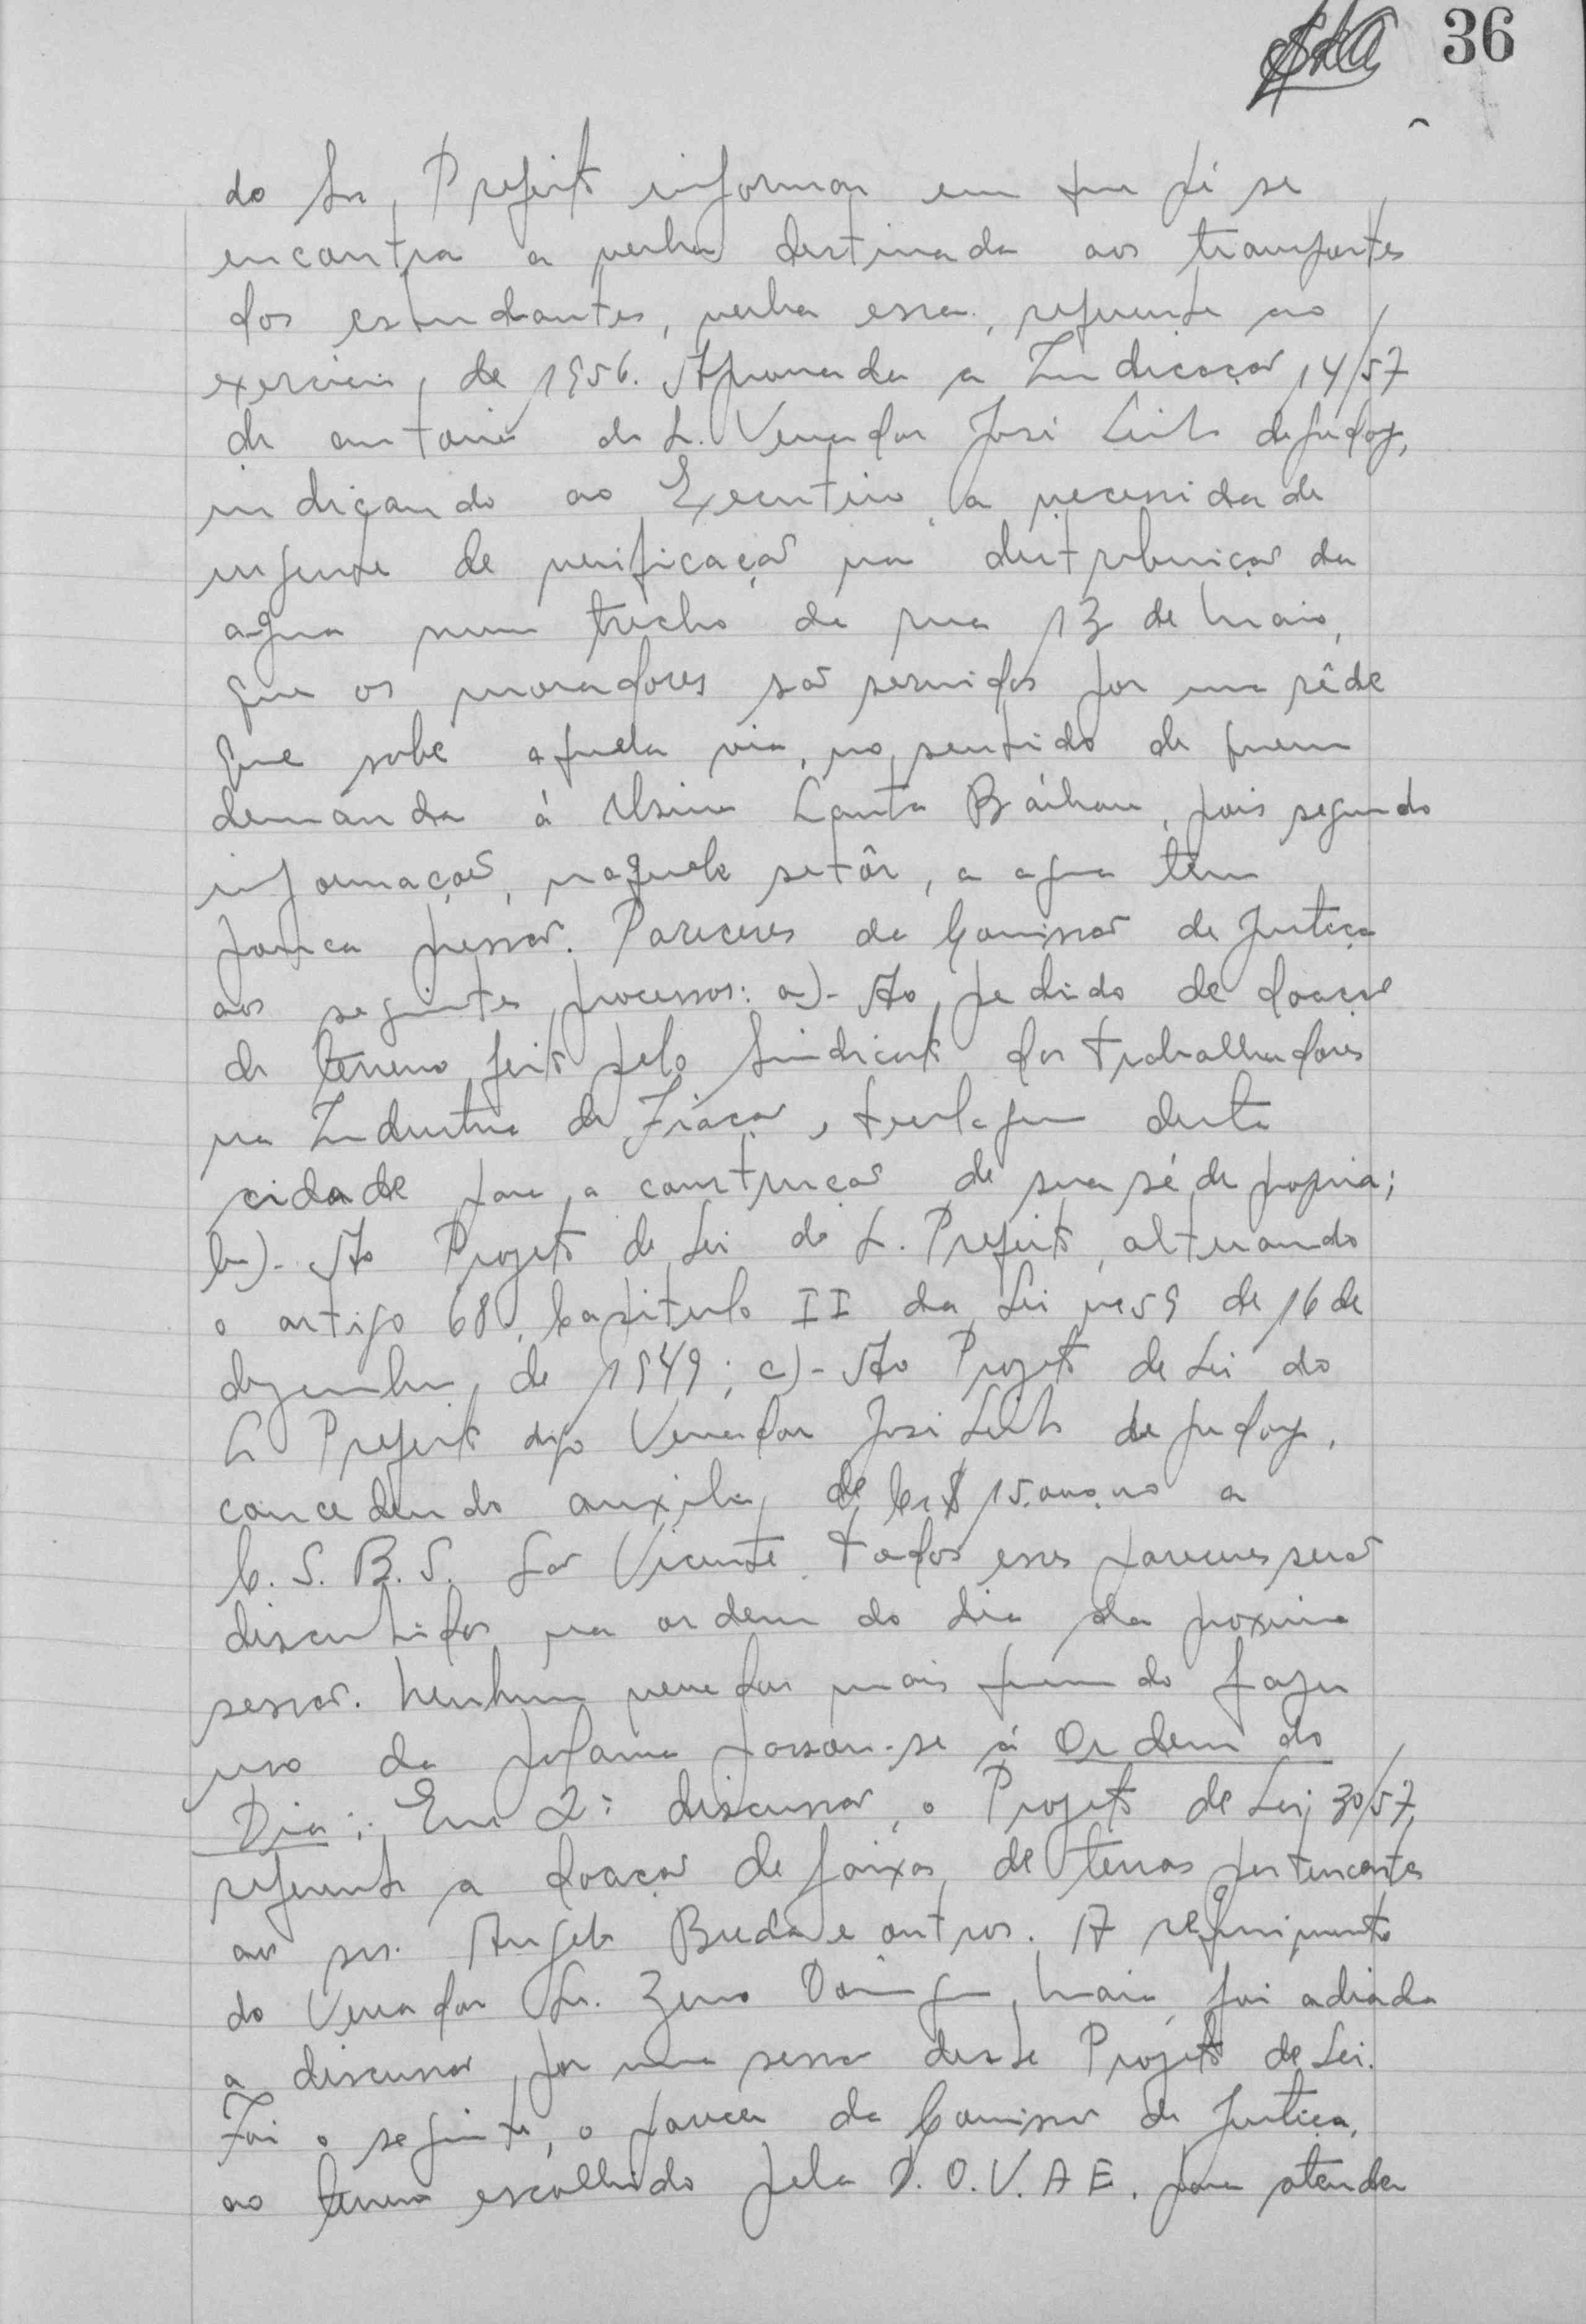 36
do Snr. Prefeito informar em que pé se
encontra a verba destinada aos transportes
dos estudantes, verba essa, referente ao
exercicio, de 1956. Aprovada a Indicação 14/57
de autoria do S. Vereador José Leite de Godoy,
indicando ao Executivo, a necessidade
urgente de verificação na distribuição da
agua num trecho da rua 13 de Maio,
que os moradores são servidos por uma rêde
que sobe aquela via, no sentido de quem
demanda á Usina Santa Bárbara, pois segundo
informações, naquele setôr, a agua têm
pouca pressão. Pareceres da Comissão de Justiça
aos seguintes processos: a)- Ao pedido de doação
de terreno feito pelo Sindicato dos trabalhadores
na Industria de Fiação, tecelagem desta
cidade para a construção de sua séde propria;
b)- Ao Projeto de Lei do S. Prefeito, alterando
o artigo 68, Capitulo II da Lei nº 59 de 16 de
dezembro, de 1949; c)- Ao Projeto de Lei do
S Prefeito digo Vereador José Leite de Godoy,
concedendo auxilio de Cr$ 15.000,00 a
C. S. B. S. São Vicente. todos esses pareceres serão
discutidos na ordem do dia da proxima
sessão. Nenhum vereador mais querendo fazer
uso da palavra passou-se á Ordem do
Dia: Em 2ª discussão, o Projeto de Lei, 30/57,
referente a doação de faixas de terras pertencentes
aos srs. Angelo Breda e outros. A requerimento
do Vereador Sr. Zeno Domingues Maia, foi adiada
a discussão por uma sessão deste Projeto de Lei.
Foi o seguinte, o parecer da Comissão de Justiça,
ao terreno escolhido pela D.O.V.A E. para atender